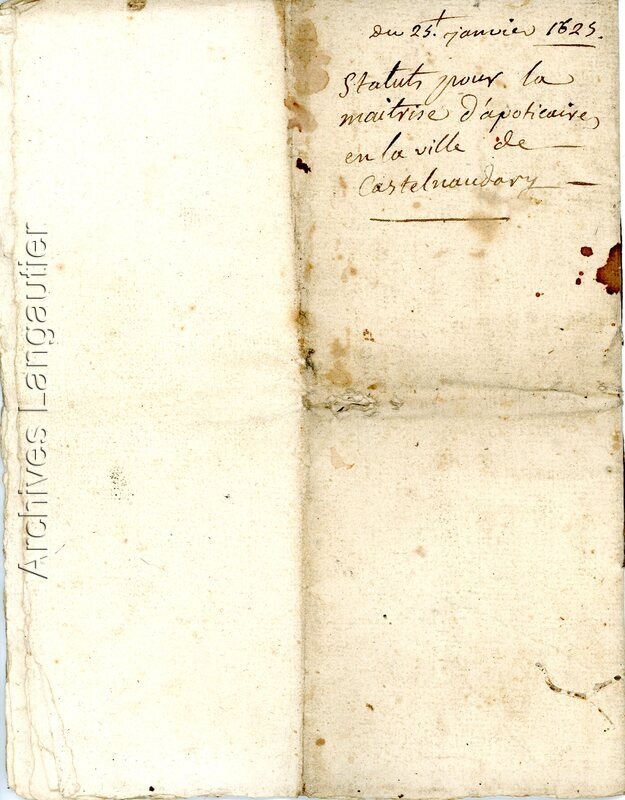 du 25.t janvier 1625.
Statuts pour la
maitrise d'apoticaire
en la ville de
Castelnaudary
Archives Langautier